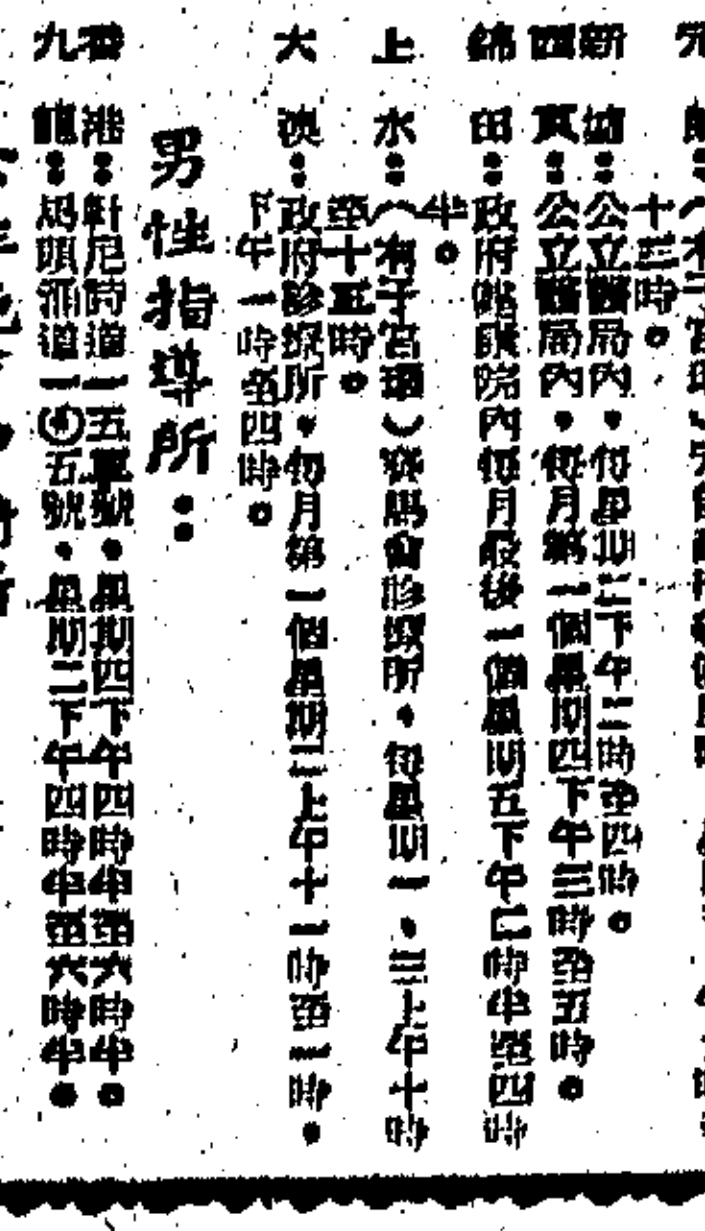 十三時。
新墟：公立醫局內，每星期三下午二時至四時。
西貢：公立醫局內，每月第一個星期四下午三時至五時。
錦田：政府 院內每月最後一個星期五下午二時半至四時
半。
上水：（有子宮環）賽馬會診療所，每星期一，三上午十時
至十五時。
大澳：政府診療所，每月第一個星期三上午十一時至一時，
下午一時至四時。
男性指導所：
香港：軒尼詩道一五 號，星期四下午四時半至六時半。
九龍：馬頭涌道一〇五號，星期二下午四時半至六時半。